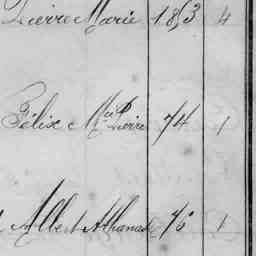 Pierre Marie 1853 4
Félix M. Pierre 74 1
Albert Athanase 76 1